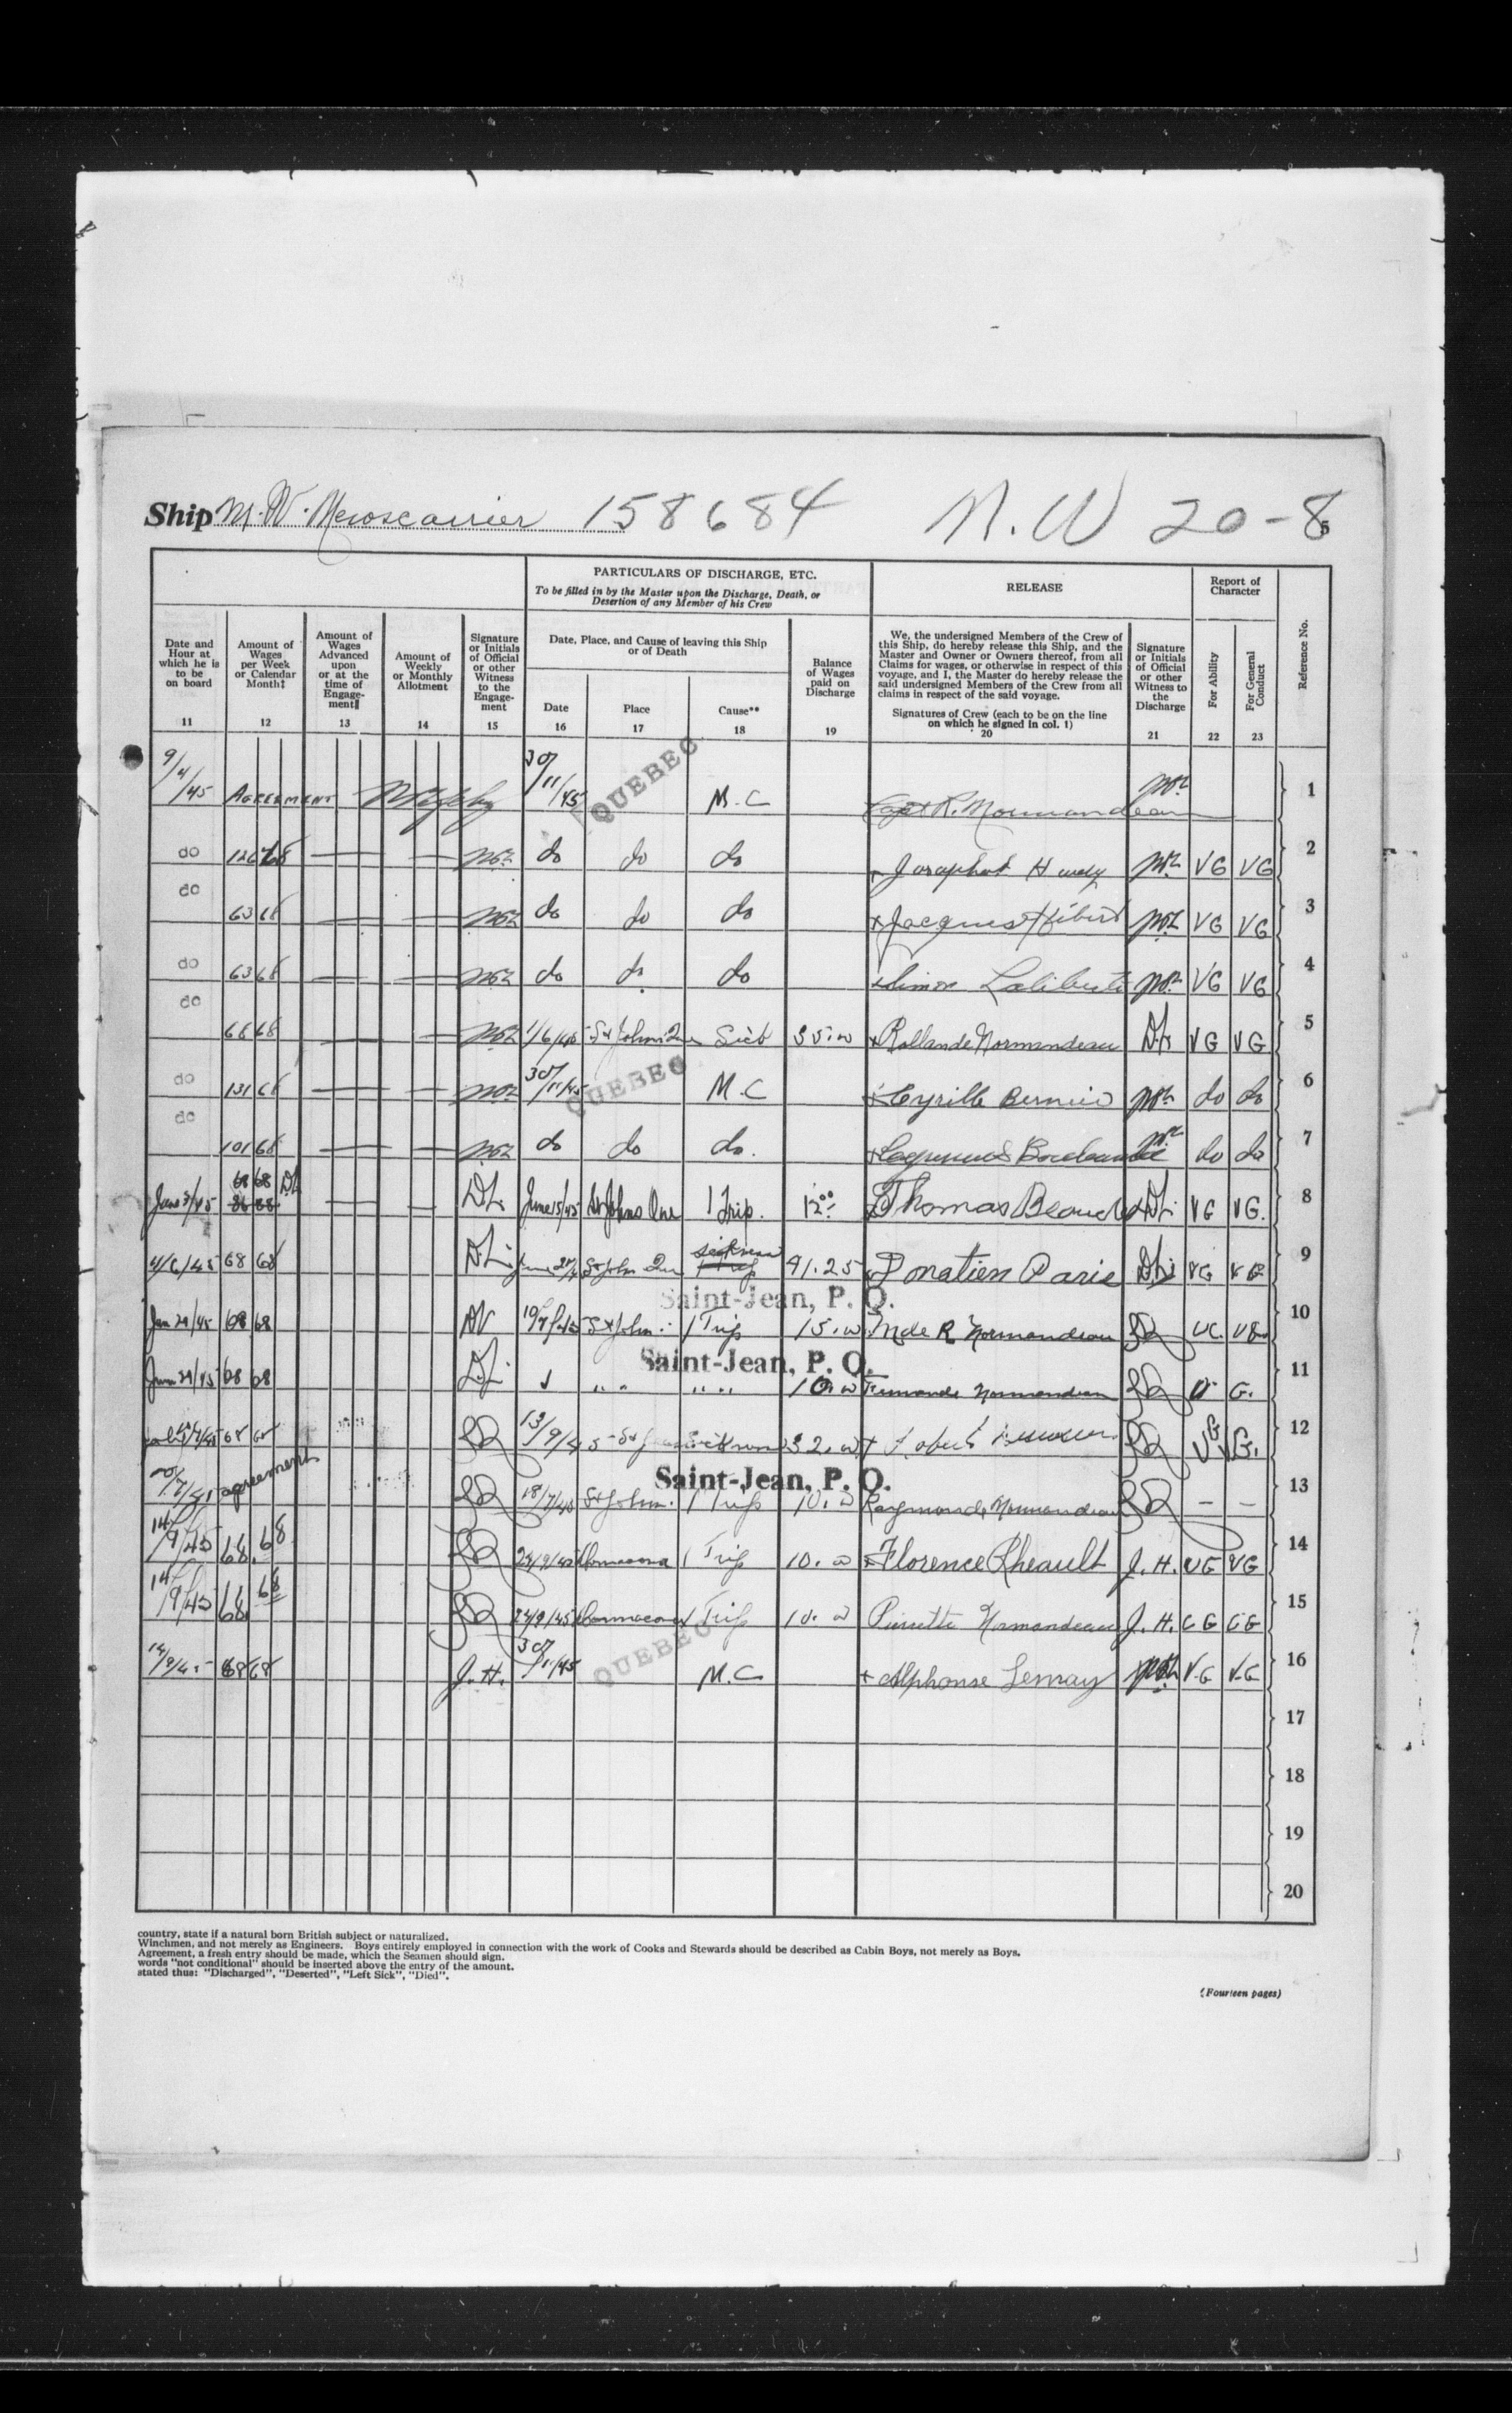 Ship M.V. Newscarrier 158684 N.W 20-8
5
PARTICULARS OF DISCHARGE, ETC.
To be filled in by the Master upon the Discharge, Death, or
Desertion of any Member of his Crew
RELEASE
Report of
Character
Date and
Hour at
which he is
to be
on board
11
Amount of
Wages
per Week
or Calendar
Month‡
12
Amount of
Wages
Advanced
upon
or at the
time of
Engage-
ment‖
13
Amount of
Weekly
or Monthly
Allotment
14
Signature
or Initials
of Official
or other
Witness
to the
Engage-
ment
15
Date, Place, and Cause of leaving this Ship
or of Death
Date
16
Place
17
Cause**
18
Balance
of Wages
paid on
Discharge
19
We, the undersigned Members of the Crew of
this Ship, do hereby release this Ship, and the
Master and Owner or Owners thereof, from all
Claims for wages, or otherwise in respect of this
voyage, and I, the Master do hereby release the
said undersigned Members of the Crew from all
claims in respect of the said voyage.
Signatures of Crew (each to be on the line
on which he signed in col. 1)
20
Signature
or Initials
of Official
or other
Witness to
the
Discharge
21
For Ability
22
For General
Conduct
23
Reference No.
9/4/45 AGREEMENT 30/11/45 QUEBEC M.C Capt R. Normandeau 1
do 126 68 do do do Josaphat Hardy VG VG 2
do 63 68 do do do x Jacques Hébert VG VG 3
do 63 68 do do do Simon Laliberte VG VG 4
do 68 68 1/6/45 St Johns Que Sick 35.00 x Rollande Normandeau D.L. VG VG 5
do 131 68 30/11/45 QUEBEC M.C x Cyrille Bernier do do 6
do 101 68 do do do. do do 7
June 3/45 68 68 D.L 86 68 D.L. June 15/45 St Johns Que 1 Trip. 12.00 Thomas D.L. VG VG. 8
4/6/45 68 68 D.L. June 27/45 St John Que sickness 1 Trip 41.25 Donatien Paris D.L. VG VG 9
Saint-Jean, P. Q.
Jan 29/45 68 68 19/7/45 St John 1 Trip 15.00 Mde R Normandeau 10
Saint-Jean, P. Q.
June 29/45 68 68 D.L. " " " " 10.00 Fernande Normandeau G. 11
68 68 13/9/45 St Jean Sickness 32.00 12
agreement
Saint-Jean, P. Q.
18/7/45 St John. 1 Trip 10.00 Raymonde Normandeau – – 13
14/9/45 68. 68 24/9/45 Donnacona 1 Trip 10.00 x Florence Rheault J.H. VG VG 14
14/9/45 68 68 24/9/45 Donnacona 1 Trip 10.00 Pierrette Normandeau J.H. 15
14/9/45 68 68 J.H. 30/11/45 QUEBEC M.C + Alphonse Lemay V.G V.G 16
17
18
19
20
country, state if a natural born British subject or naturalized.
Winchmen, and not merely as Engineers. Boys entirely employed in connection with the work of Cooks and Stewards should be described as Cabin Boys, not merely as Boys.
Agreement, a fresh entry should be made, which the Seamen should sign.
words "not conditional" should be inserted above the entry of the amount.
stated thus: "Discharged", "Deserted", "Left Sick", "Died".
(Fourteen pages)